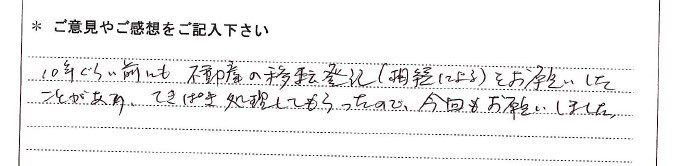 * ご意見やご感想をご記入下さい
10年ぐらい前にも 不動産の移転登記(相続による)をお願いした
ことがあり、てきぱき処理してもらったので、今回もお願いしました。